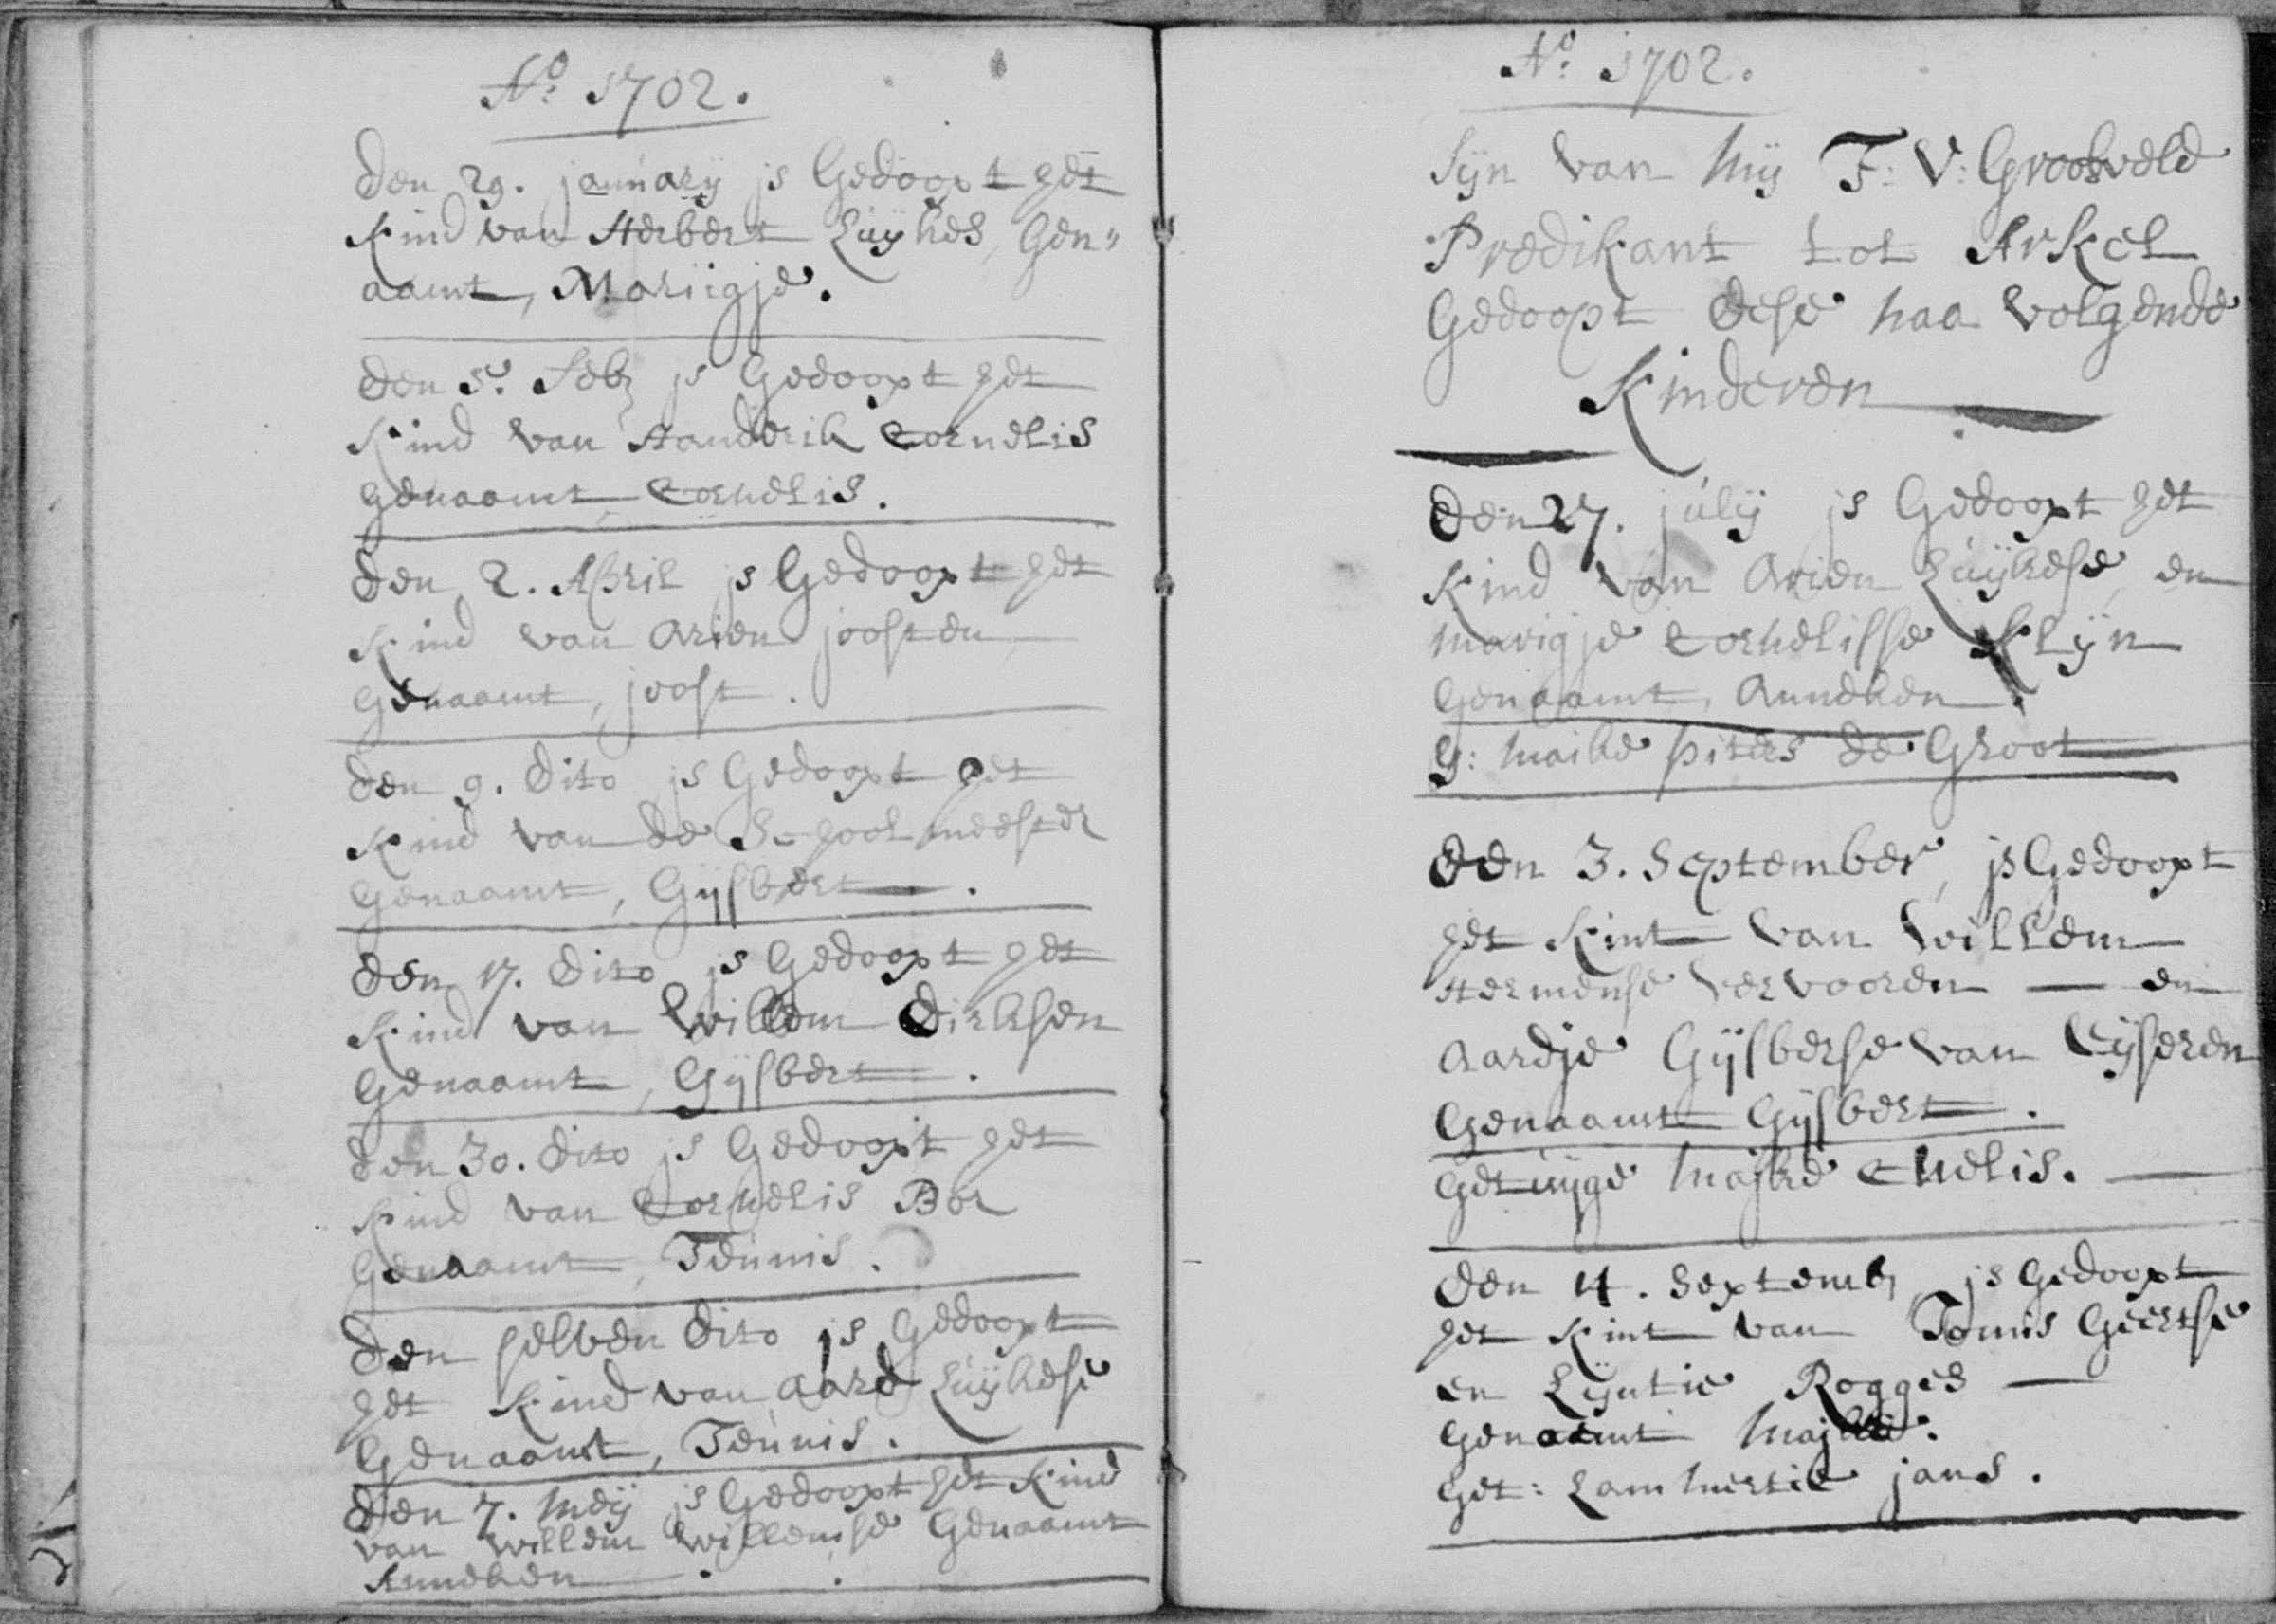 Ao 1702.
Den 29. januarij js Gedoopt het
Kind van Herbert Luykes, Gen„
aamt, Marijgje.
Den 5. Feb js Gedoopt het
Kind van Handerik Cornelis
genaamt, Cornelis.
Den 2. April js Gedoopt het
Kind van Arien joosten
Genaamt, joost.
Den 9. Dito js Gedoopt het
Kind van de Schoolmeester
Genaamt, Gijsbert.
Den 17. Dito js Gedoopt het
Kind van Willem Dirksen
Genaamt, Gijsbert.
Den 30. Dito js Gedoopt het
Kind van Cornelis Bor
Genaamt, Teunis.
Den selven Dito js Gedoopt
het Kind van Aard Luykese
Genaamt, Teunis.
Den 7. Meij js Gedoopt het Kind
van Willem Willemse Genaamt
Anneken.
Ao: 1702.
Sijn van Mij F: V: Grootveld
Predikant tot Arkel
Gedoopt dese naa volgende
Kinderen
Den 27. julij js Gedoopt het
Kind van Arien Luijkese, en
Marigje Cornelisse Klijn
Genaamt, Anneken.
G: Maike piters de Groot
Den 3. September, js Gedoopt
het Kint van Willem
Hermense Vervooren — en
Aardje Gijsberse van
Genaamt Gijsbert.
Getuijge Majke Cnelis.
Den 4. Septemb js Gedoopt
het Kint van Tonnis Geertse
en Lijntie Rogges —
Genaamt Majke.
Get: Lammertie jans.